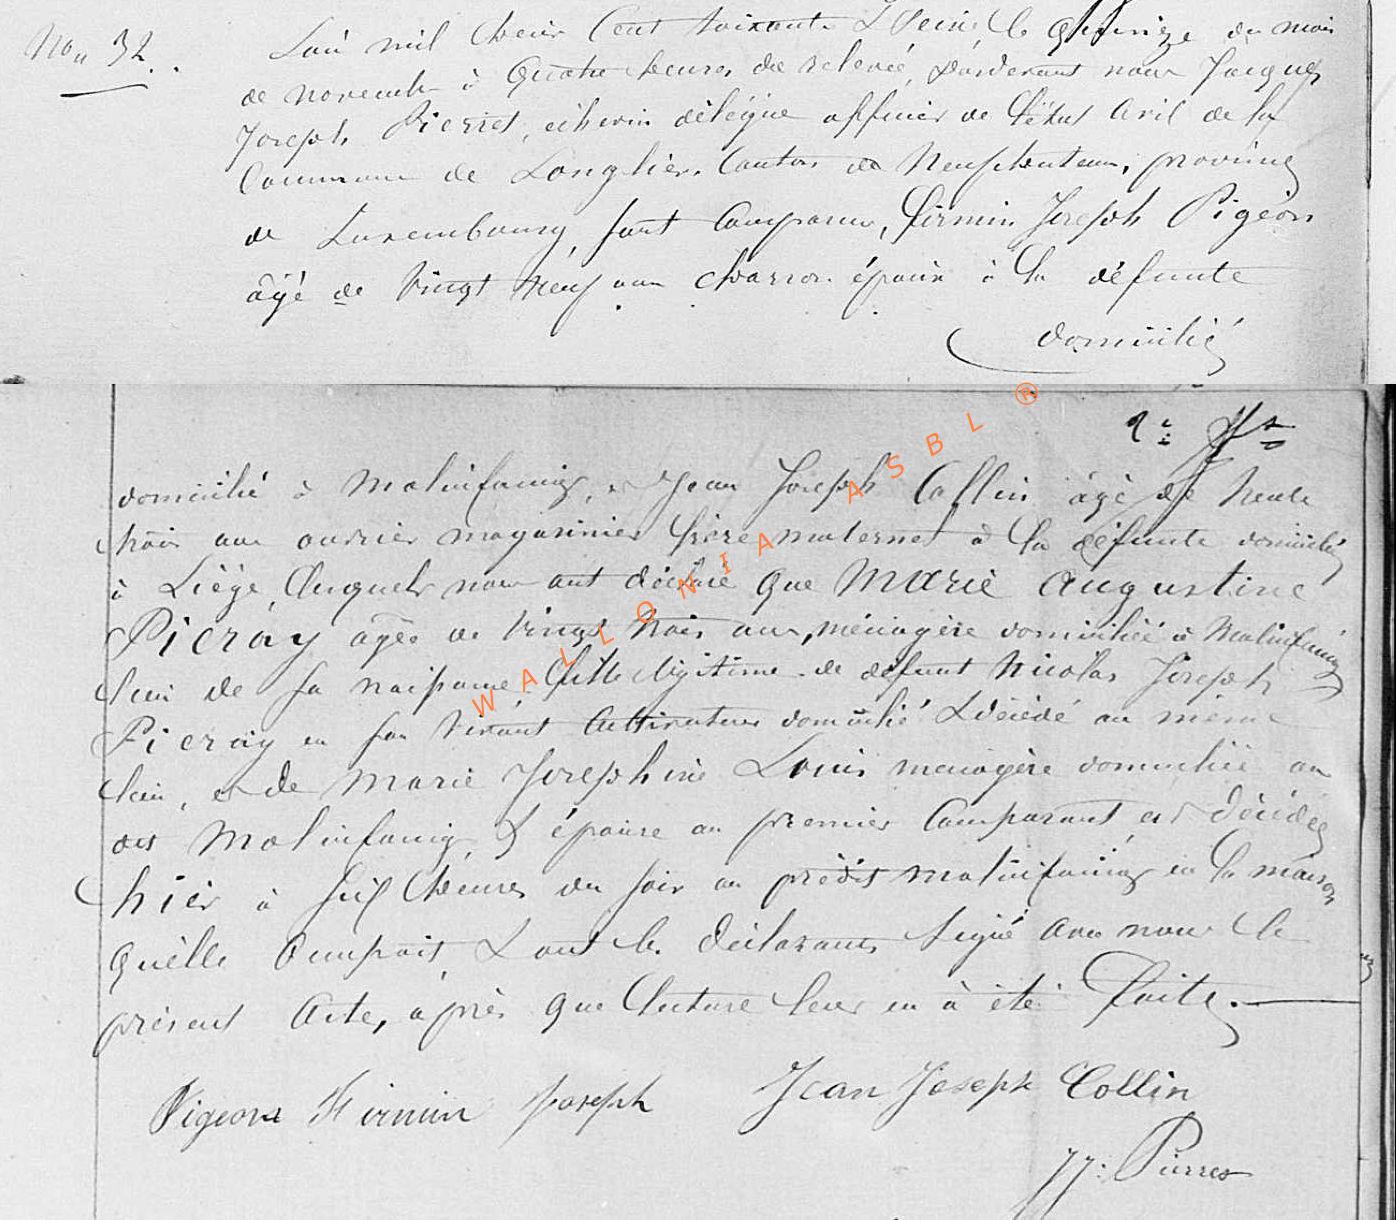 No 32.
L'an mil huit Cent soixante & seize, le quinze du mois
de novembre à Quatre heures de relevée, pardevant nous Jacques
Joseph Pierret, échevin délégué officier de l'état Civil de la
Commune de Longlier, Canton de Neufchateau, province
de Luxembourg, sont Comparus, firmin Joseph Pigéon
âgé de Vingt Neuf ans charron époux à la défunte
domicilié
2e
domicilié à Molinfaing, et Jean Joseph Collin âgé de trente
trois ans ouvrier magasinier frère maternel à la défunte domicilié
à Liége, lesquels nous ont déclaré que Marie Augustine
Pieray âgée de Vingt trois ans, ménagère domiciliée à Molinfaing
lieu de sa naissance, fille légitime de défunt Nicolas Joseph
Pieray en son vivant Cultivateur domicilié & décédé au même
lieu, et de Marie Joséphine Louis ménagère domiciliée au
dit Molinfaing & épouse au premier Comparant est décédée
hier à six heures du soir au prédit Molinfaing en la maison
quélle Occupait, & ont les déclarants signé avec nous le
présent Acte, après que lecture leur en à été faite.
Pigeon Firmin Joseph Jean Joseph Collin
JJ: Pierret
WALLONIA ASBL ®